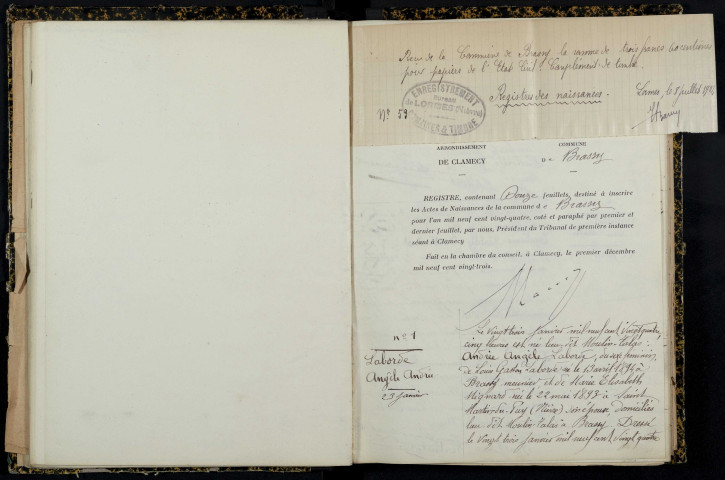 Reçu de la Commune de Brassy la somme de trois francs 60 centimes
pour papiers de l'Etat Civil. Complément de timbre.
Registres des naissances. Lormes, le 8 juillet
ENREGISTREMENT
Bureau
de LORMES (Nièvre)
& TIMBRE
N° 59
ARRONDISSEMENT
DE CLAMECY
COMMUNE
De Brassy
REGISTRE, contenant Douze feuillets, destiné à inscrire
les Actes de Naissances de la commune de Brassy
pour l'an mil neuf cent vingt-quatre, coté et paraphé par premier et
dernier feuillet, par nous, Président du Tribunal de première instance
séant à Clamecy
Fait en la chambre du conseil, à Clamecy, le premier décembre
mil neuf cent vingt-trois.
n° 1
Laborde
Angèle Andrée
23 janvier
Le vingt trois janvier mil neuf cent vingt quatre,
cinq heures est née lieu dit Moulin
Andrée Angèle Laborde, du sexe féminin,
de Louis Gaston Laborde né le 13 avril 1896 à
Brassy meunier et de Marie Elisabeth
Mignard née le 22 mai 1893 à Saint
Martin du Puy (Nièvre) son épouse domiciliés
lieu dit Moulin à Brassy. Dressé
le vingt trois janvier mil neuf cent vingt quatre